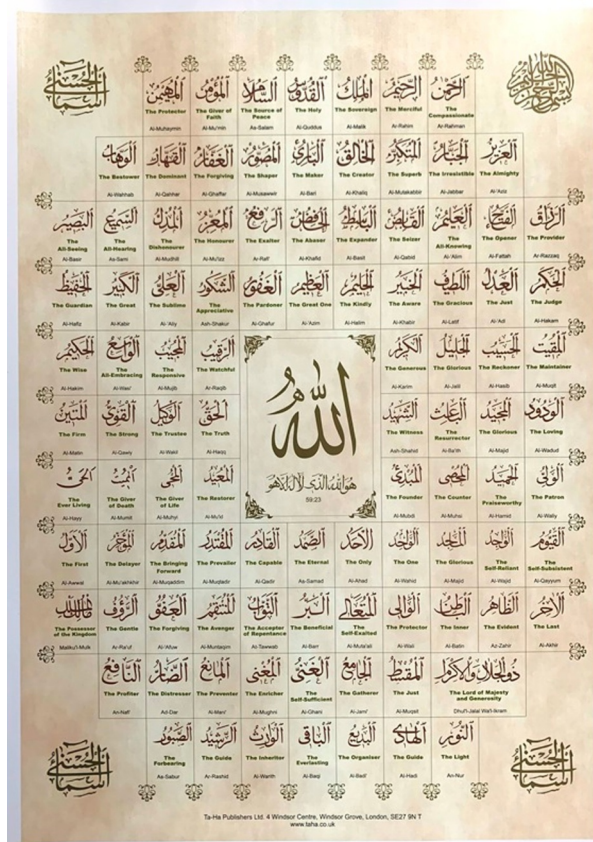 أسماء الله الحسنى
بسم الله الرحمن الرحيم
الرحمن
The Compassionate
Ar-Rahman
الرحيم
The Merciful
Ar-Rahim
الملك
The Sovereign
Al-Malik
القدوس
The Holy
Al-Quddus
السلام
The Source of Peace
As-Salam
المؤمن
The Giver of Faith
Al-Mu'min
المهيمن
The Protector
Al-Muhaymin
العزيز
The Almighty
Al-'Aziz
الجبار
The Irresistible
Al-Jabbar
المتكبر
The Superb
Al-Mutakabbir
الخالق
The Creator
Al-Khaliq
البارئ
The Maker
Al-Bari
المصور
The Shaper
Al-Musawwir
الغفار
The Forgiving
Al-Ghaffar
القهار
The Dominant
Al-Qahhar
الوهاب
The Bestower
Al-Wahhab
الرزاق
The Provider
Ar-Razzaq
الفتاح
The Opener
Al-Fattah
العليم
The All-Knowing
Al-Alim
القابض
The Seizer
Al-Qabid
الباسط
The Expander
Al-Basit
الخافض
The Abaser
Al-Khafid
الرافع
The Exalter
Ar-Rafi'
المعز
The Honourer
Al-Mu'izz
المذل
The Dishonourer
Al-Mudhill
السميع
The All-Hearing
As-Sami
البصير
The All-Seeing
Al-Basir
الحكم
The Judge
Al-Hakam
العدل
The Just
Al-'Adl
اللطيف
The Gracious
Al-Latif
الخبير
The Aware
Al-Khabir
الحليم
The Kindly
Al-Halim
العظيم
The Great One
Al-'Azim
الغفور
The Pardoner
Al-Ghafur
الشكور
The Appreciative
Ash-Shakur
العلي
The Sublime
Al-'Aliy
الكبير
The Great
Al-Kabir
الحفيظ
The Guardian
Al-Hafiz
المقيت
The Maintainer
Al-Muqit
الحسيب
The Reckoner
Al-Hasib
الجليل
The Glorious
Al-Jalil
الكريم
The Generous
Al-Karim
الرقيب
The Watchful
Ar-Raqib
المجيب
The Responsive
Al-Mujib
الواسع
The All-Embracing
Al-Wasi'
الحكيم
The Wise
Al-Hakim
الودود
The Loving
Al-Wadud
المجيد
The Glorious
Al-Majid
الباعث
The Resurrector
Al-Ba'ith
الشهيد
The Witness
Ash-Shahid
الحق
The Truth
Al-Haqq
الوكيل
The Trustee
Al-Wakil
القوي
The Strong
Al-Qawiy
المتين
The Firm
Al-Matin
الله
هو الله الذي لا إله إلا هو
59:23
الولي
The Patron
Al-Waliy
الحميد
The Praiseworthy
Al-Hamid
المحصي
The Counter
Al-Muhsi
المبدئ
The Founder
Al-Mubdi
المعيد
The Restorer
Al-Mu'id
المحيي
The Giver of Life
Al-Muhyi
المميت
The Giver of Death
Al-Mumit
الحي
The Ever Living
Al-Hayy
القيوم
The Self-Subsistent
Al-Qayyum
الواجد
The Self-Reliant
Al-Wajid
الماجد
The Glorious
Al-Majid
الواحد
The One
Al-Wahid
الأحد
The Only
Al-Ahad
الصمد
The Eternal
As-Samad
القادر
The Capable
Al-Qadir
المقتدر
The Prevailer
Al-Muqtadir
المقدم
The Bringing Forward
Al-Muqaddim
المؤخر
The Delayer
Al-Mu'akhkhir
الأول
The First
Al-Awwal
الآخر
The Last
Al-Akhir
الظاهر
The Evident
Az-Zahir
الباطن
The Inner
Al-Batin
الوالي
The Protector
Al-Wali
المتعالي
The Self-Exalted
Al-Muta'ali
البر
The Beneficial
Al-Barr
التواب
The Acceptor of Repentance
At-Tawwab
المنتقم
The Avenger
Al-Muntaqim
العفو
The Forgiving
Al-'Afuw
الرؤوف
The Gentle
Ar-Ra'uf
مالك الملك
The Possessor of the Kingdom
Maliku'l-Mulk
ذو الجلال والإكرام
The Lord of Majesty and Generosity
Dhu'l-Jalal Wa'l-Ikram
المقسط
The Just
Al-Muqsit
الجامع
The Gatherer
Al-Jami'
الغني
The Self-Sufficient
Al-Ghani
المغني
The Enricher
Al-Mughni
المانع
The Preventer
Al-Mani'
الضار
The Distresser
Ad-Dar
النافع
The Profiter
An-Nafi'
النور
The Light
An-Nur
الهادي
The Guide
Al-Hadi
البديع
The Organiser
Al-Badi'
الباقي
The Everlasting
Al-Baqi
الوارث
The Inheritor
Al-Warith
الرشيد
The Guide
Ar-Rashid
الصبور
The Forbearing
As-Sabur
أسماء الله الحسنى
أسماء الله الحسنى
Ta-Ha Publishers Ltd. 4 Windsor Centre, Windsor Grove, London, SE27 9N T
www.taha.co.uk